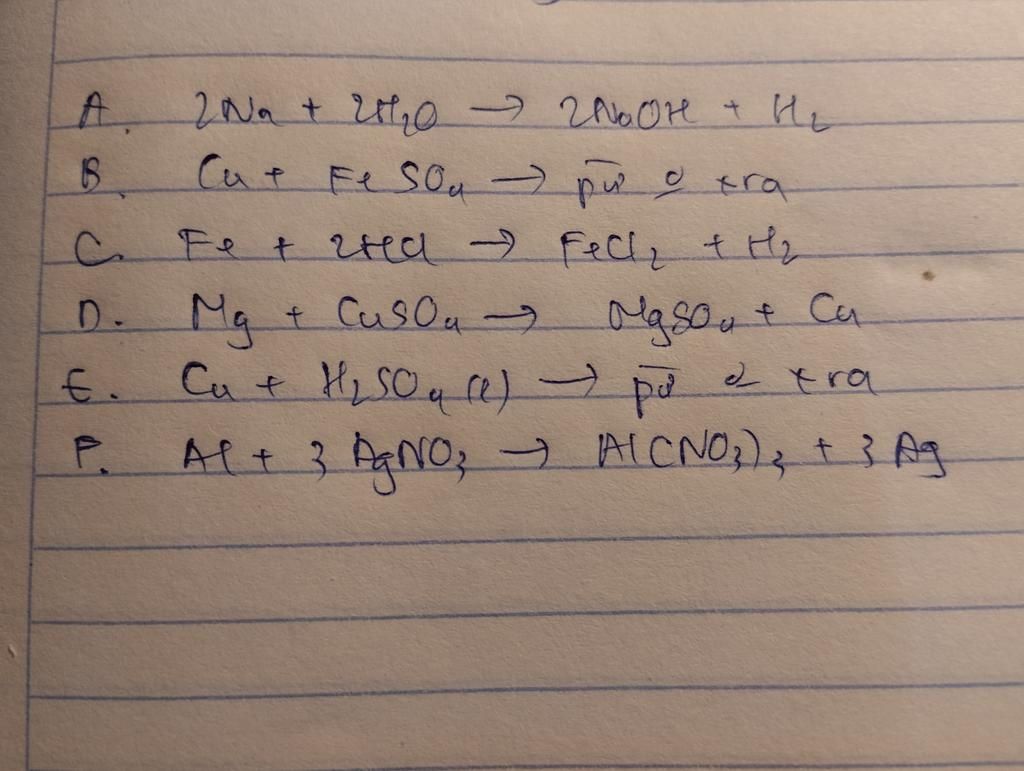 A. 2Na + 2H₂O → 2NaOH + H₂
B. Cu + FeSO₄ → pư ko xra
C. Fe + 2HCl → FeCl₂ + H₂
D. Mg + CuSO₄ → MgSO₄ + Cu
E. Cu + H₂SO₄ (l) → pư ko xra
F. Al + 3AgNO₃ → Al(NO₃)₃ + 3Ag